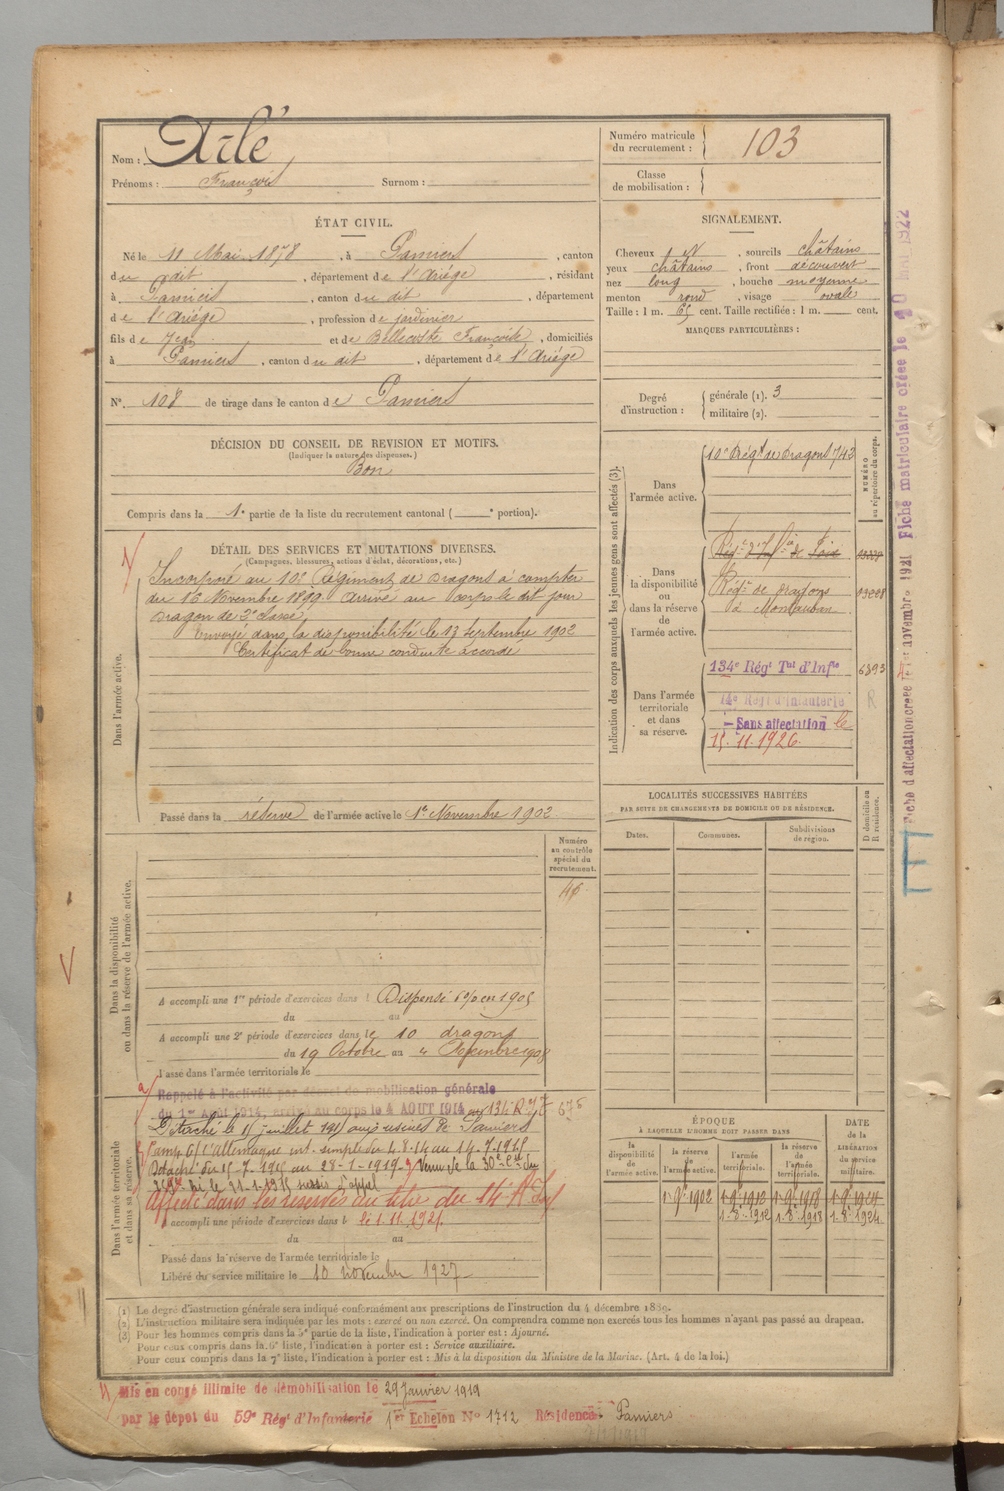 Nom : Arlé
Prénoms : François Surnom :
Numéro matricule du recrutement : 103
Classe de mobilisation :
ÉTAT CIVIL.
Né le 11 Mai 1878, à Pamiers, canton
du dit, département de l'Ariège, résidant
à Pamiers, canton du dit, département
de l'Ariège, profession de jardinier
fils de Jean et de Bellecoste Françoise, domiciliés
à Pamiers, canton du dit, département de l'Ariège
N° 108 de tirage dans le canton de Pamiers
DÉCISION DU CONSEIL DE REVISION ET MOTIFS.
(Indiquer la nature des dispenses.)
Bon
Compris dans la 1e partie de la liste du recrutement cantonal ( e portion).
SIGNALEMENT.
Cheveux N, sourcils châtains
yeux châtains, front découvert
nez long, bouche moyenne
menton rond, visage ovale
Taille : 1 m. 65 cent. Taille rectifiée : 1 m. cent.
MARQUES PARTICULIÈRES :
Degré d'instruction : générale (1). 3
militaire (2).
DÉTAIL DES SERVICES ET MUTATIONS DIVERSES.
(Campagnes, blessures, actions d'éclat, décorations, etc.)
Dans l'armée active.
Incorporé au 10e Régiment de Dragons à compter
du 16 Novembre 1899. Arrivé au corps le dit jour
Dragon de 2e classe
Envoyé dans la disponibilité le 13 Septembre 1902
Certificat de bonne conduite accordé
Passé dans la réserve de l'armée active le 1er Novembre 1902
Indication des corps auxquels les jeunes gens sont affectés (3).
NUMÉRO au répertoire du corps.
Dans l'armée active. 10e Régt de Dragons 743
Dans la disponibilité ou dans la réserve de l'armée active.
Régt de dragons
à Montauban
Dans l'armée territoriale et dans sa réserve.
134e Régt Tal d'Infie 6893
14e Régt d'Infanterie R
Sans affectation le
15.11.1926
LOCALITÉS SUCCESSIVES HABITÉES
PAR SUITE DE CHANGEMENTS DE DOMICILE OU DE RÉSIDENCE.
Dates. Communes. Subdivisions de région. D domicile ou R résidence.
Dans la disponibilité ou dans la réserve de l'armée active.
Numéro au contrôle spécial du recrutement.
46
A accompli une 1re période d'exercices dans l Dispensé 6% en 1905
du au
A accompli une 2e période d'exercices dans le 10 dragons
du 19 Octobre au Novembre 1908
Passé dans l'armée territoriale le
Dans l'armée territoriale et dans sa réserve.
Rappelé à l'activité par décret de mobilisation générale
du 1er Août 1914, arrivé au corps le 4 AOUT 1914 au 134 Rgt 675
Détaché le 15 juillet 1915 aux usines de Pamiers
Camp. c/ l'Allemagne int. simple du 4.8.14 au 14.7.1915
Détaché du 15.7.1915 au 28-1-1919.
Affecté dans les réserves au titre du 14e R. Inf.
accompli une période d'exercices dans l le 1.11.1921
du au
Passé dans la réserve de l'armée territoriale le
Libéré du service militaire le 10 novembre 1927
ÉPOQUE
À LAQUELLE L'HOMME DOIT PASSER DANS
la disponibilité de l'armée active. la réserve de l'armée active. l'armée territoriale. la réserve de l'armée territoriale. DATE de la LIBÉRATION du service militaire.
1.9.1902 1.9.1912 1.9.1918 1.9.1924
1.8.1912 1.8.1918 1.8.1924
(1) Le degré d'instruction générale sera indiqué conformément aux prescriptions de l'instruction du 4 décembre 1889.
(2) L'instruction militaire sera indiquée par les mots : exercé ou non exercé. On comprendra comme non exercés tous les hommes n'ayant pas passé au drapeau.
(3) Pour les hommes compris dans la 5e partie de la liste, l'indication à porter est : Ajourné.
Pour ceux compris dans la 6e liste, l'indication à porter est : Service auxiliaire.
Pour ceux compris dans la 7e liste, l'indication à porter est : Mis à la disposition du Ministre de la Marine. (Art. 4 de la loi.)
Mis en congé illimité de démobilisation le 29 Janvier 1919
par le dépôt du 59e Régt d'Infanterie 1er Echelon No 1712 Résidence Pamiers
Fiche d'affectation créée le 1er novembre 1921 Fiche matriculaire créée le 10 1922
E